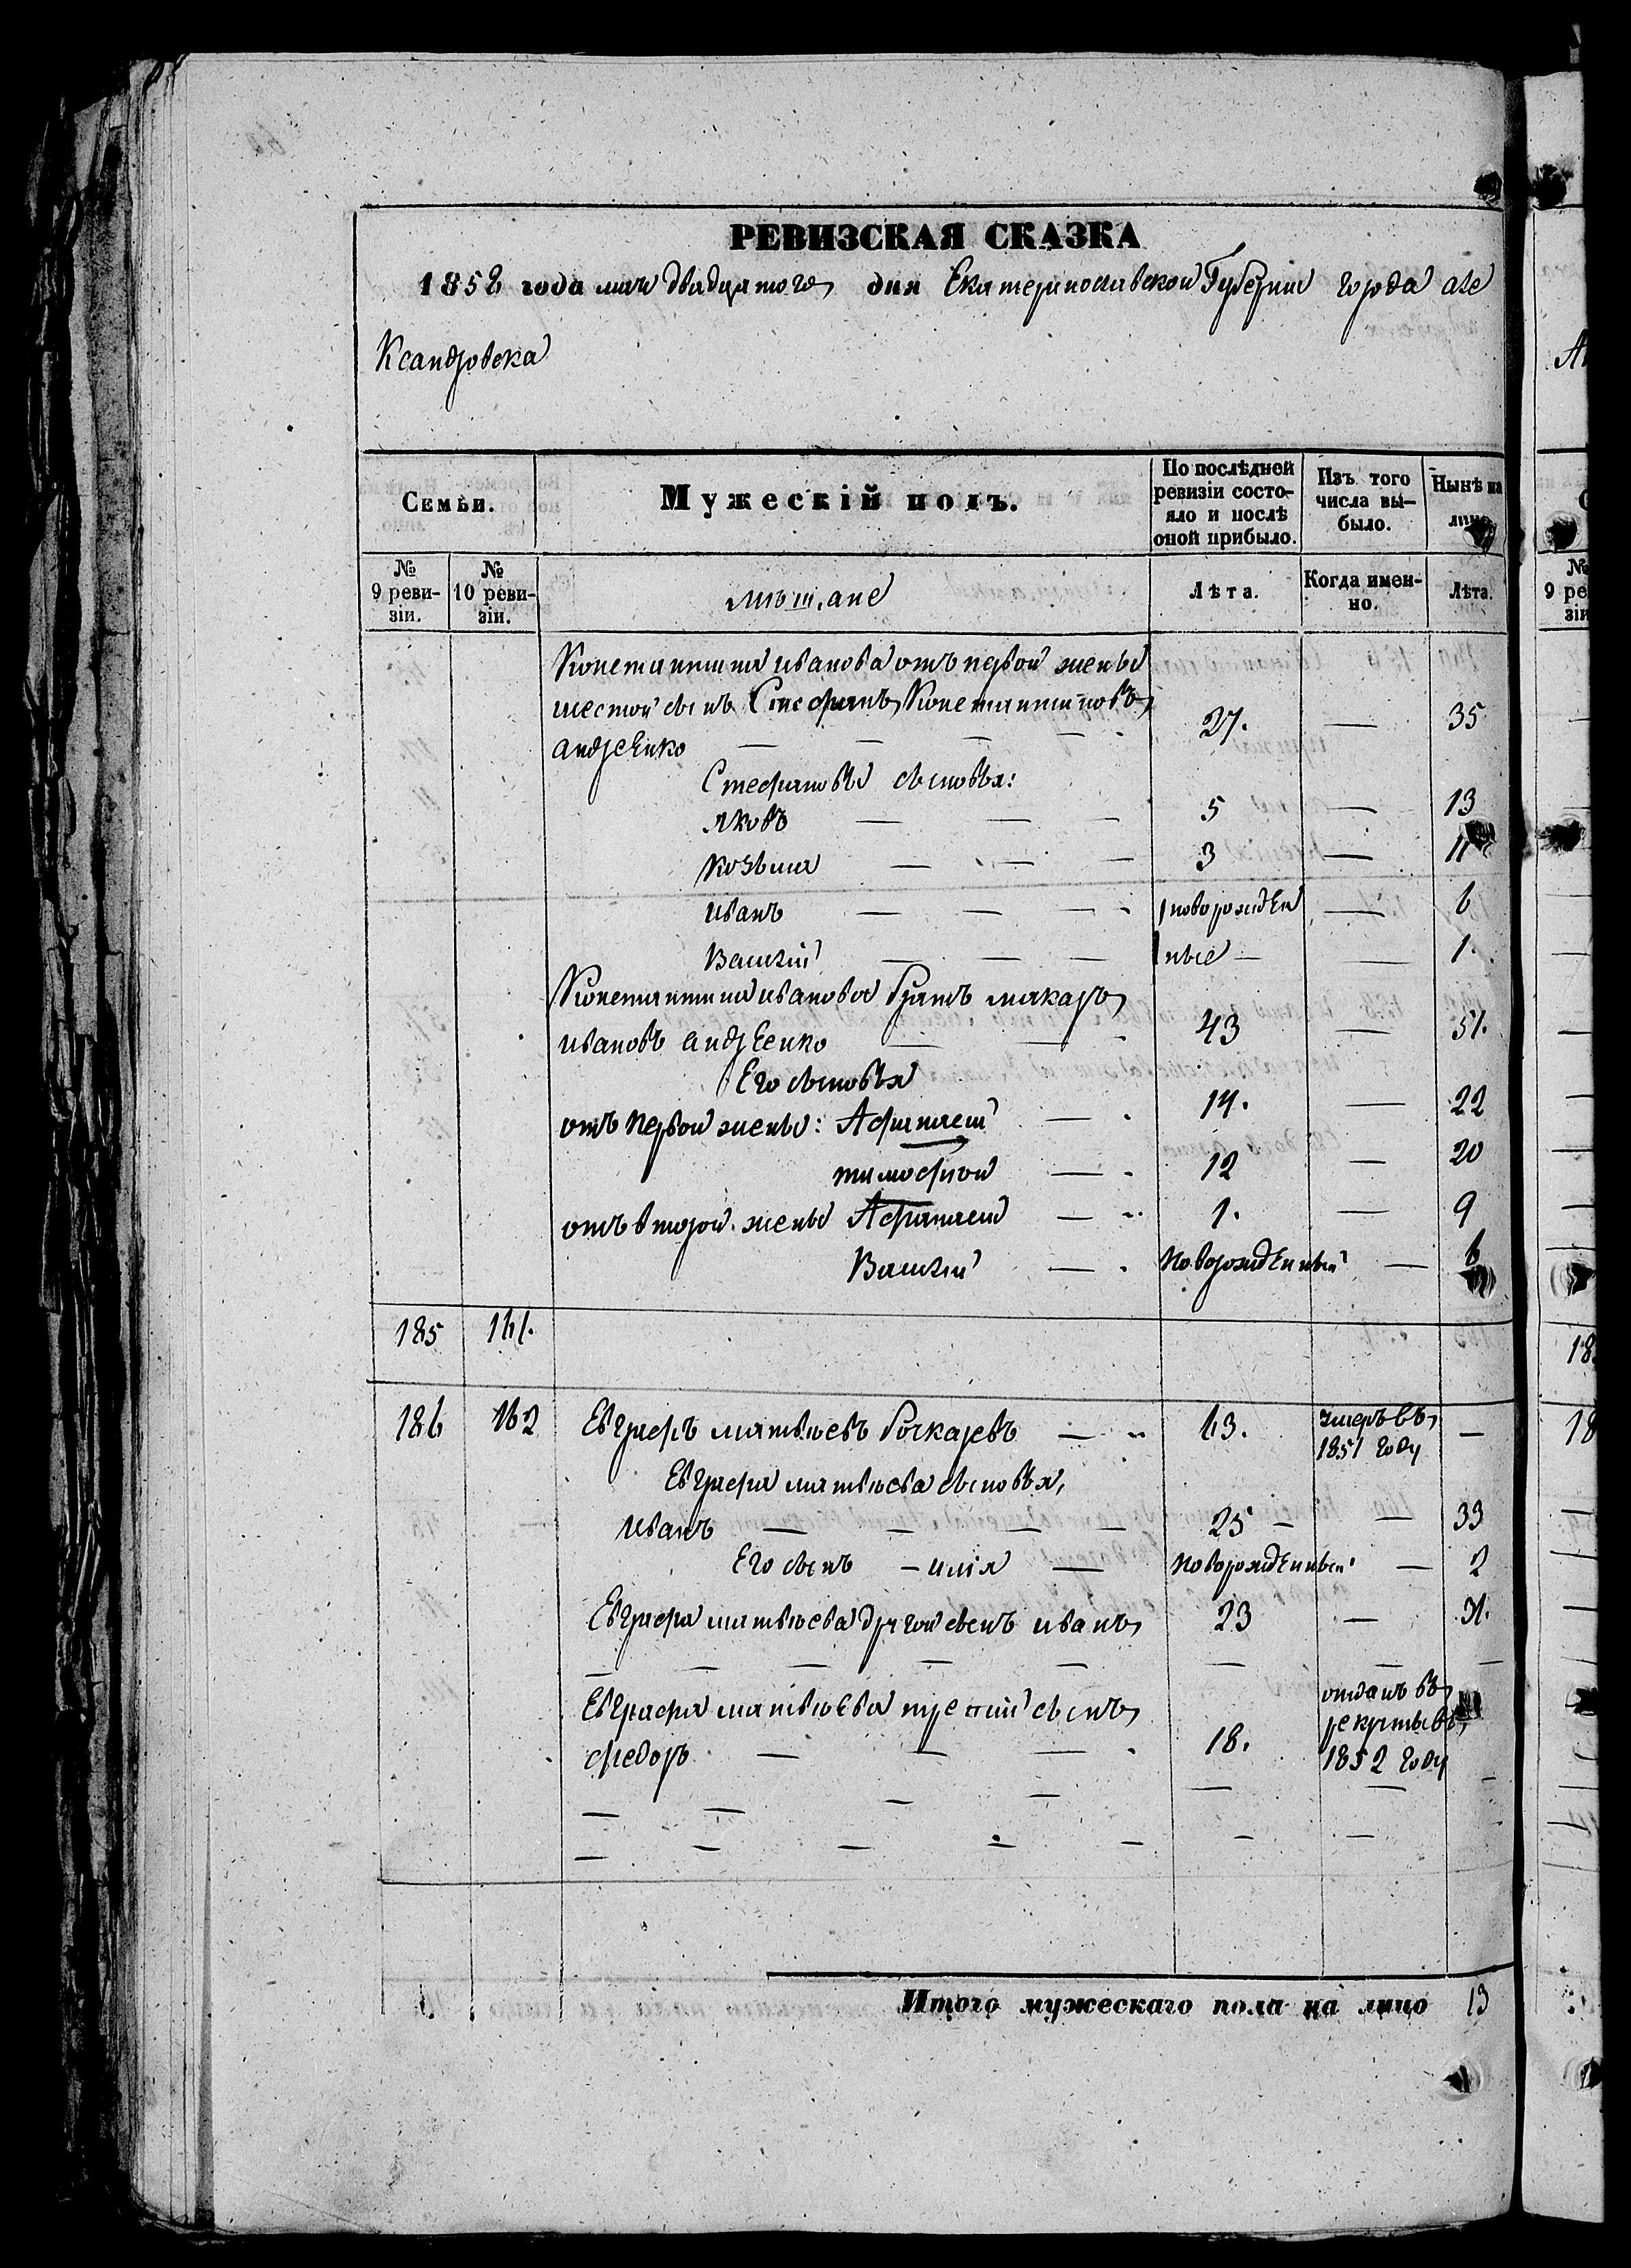 РЕВИЗСКАЯ СКАЗКА
1858 года мая двадцатого дня Екатеринославской Губернии города але
ксандровска
Семьи.
Мужескій полъ.
По послѣдней ревизіи состояло и послѣ оной прибыло.
Изъ того числа выбыло.
Нынѣ на лицо
№ 9 ревизіи.
№ 10 ревизіи.
мѣщане
Лѣта.
Когда именно.
Лѣта.
Константина иванова отъ первой жены
шестой сынъ Стефанъ Константиновъ
андреенко — — — — 27. — 35
Стефановы сыновья:
яковъ — — — 5 — 13
козьма — — — 3 — 11
иванъ — — — новорожден — 6
Василій — — — ные — — 1.
Константина иванова братъ макаръ
ивановъ андреенко — — 43 — 51.
Его сыновья
отъ первой жены: Афанасій — 14. — 22
тимофѣй — 12 — 20
отъ второй жены Афанасій — 1. — 9
Василій — новорожденный — 6
185 161.
186 162 Евграфъ матвѣевъ бочкаревъ — 63. умеръ въ 1851 году —
Евграфа матвѣева сыновья,
иванъ — — — — 25 — — 33
Его сынъ — илія — новорожденный — 2
Евграфа матвѣева другой сынъ иванъ 23 — 31.
— — — — — — — —
Евграфа матвѣева третій сынъ
федоръ — — — 18. отданъ въ рекруты въ 1852 году
— — — — — — —
— — — — — — —
Итого мужескаго пола на лицо 13